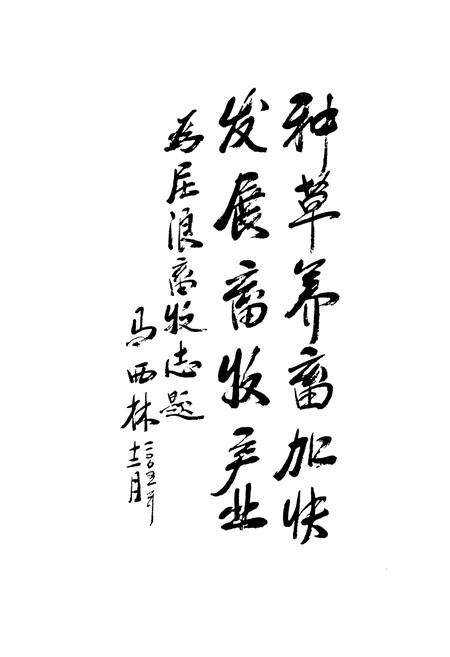 种草养畜加快
发展畜牧产业
为屈浪畜牧志题
马西林
二〇〇五年
十二月